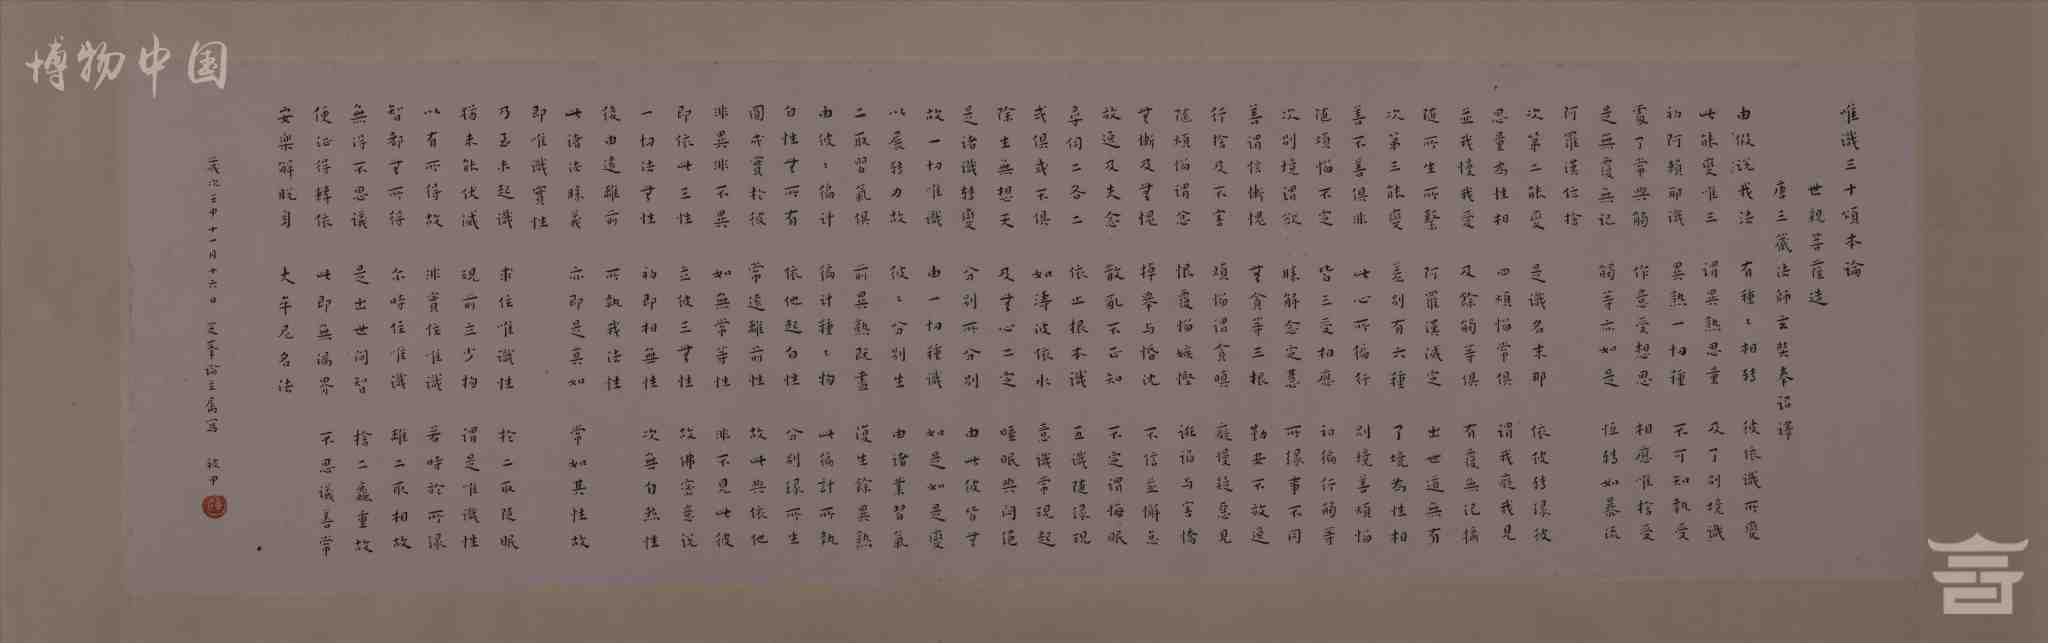 博物中国
唯識三十頌本論
世親菩薩造
唐三藏法師玄奘奉詔譯
由假說我法 有種々相轉 彼依識所變
此能變唯三 謂異熟思量 及了別境識
初阿賴耶識 異熟一切種 不可知執受
處了常與觸 作意受想思 相應唯捨受
是無覆無記 觸等亦如是 恒轉如暴流
阿羅漢位捨
次第二能變 是識名末那 依彼轉緣彼
思量為性相 四煩惱常俱 謂我癡我見
並我慢我愛 及餘觸等俱 有覆無記攝
隨所生所繫 阿羅漢滅定 出世道無有
次第三能變 差別有六種 了境為性相
善不善俱非 此心所徧行 別境善煩惱
隨煩惱不定 皆三受相應 初徧行觸等
次別境謂欲 勝解念定慧 所緣事不同
善謂信慚愧 無貪等三根 勤安不放逸
行捨及不害 煩惱謂貪瞋 癡慢疑惡見
隨煩惱謂忿 恨覆惱嫉慳 誑諂与害憍
無慚及無愧 掉舉与惛沈 不信並懈怠
放逸及失念 散亂不正知 不定謂悔眠
尋伺二各二 依止根本識 五識隨緣現
或俱或不俱 如濤波依水 意識常現起
除生無想天 及無心二定 睡眠與悶絕
是諸識轉變 分別所分別 由此彼皆無
故一切唯識 由一切種識 如是如是變
以展轉力故 彼々分別生 由諸業習氣
二取習氣俱 前異熟既盡 復生餘異熟
由彼々徧計 徧計種々物 此徧計所執
自性無所有 依他起自性 分別緣所生
圓成實於彼 常遠離前性 故此與依他
非異非不異 如無常等性 非不見此彼
即依此三性 立彼三無性 故佛密意說
一切法無性 初即相無性 次無自然性
後由遠離前 所執我法性
此諸法勝義 亦即是真如 常如其性故
即唯識實性
乃至未起識 求住唯識性 於二取隨眠
猶未能伏滅 現前立少物 謂是唯識性
以有所得故 非實住唯識 若時於所緣
智都無所得 尒時住唯識 離二取相故
無得不思議 是出世間智 捨二麤重故
便證得轉依 此即無漏界 不思議善常
安樂解脫身 大牟尼名法
歲次壬申十一月十六日 論主屬寫